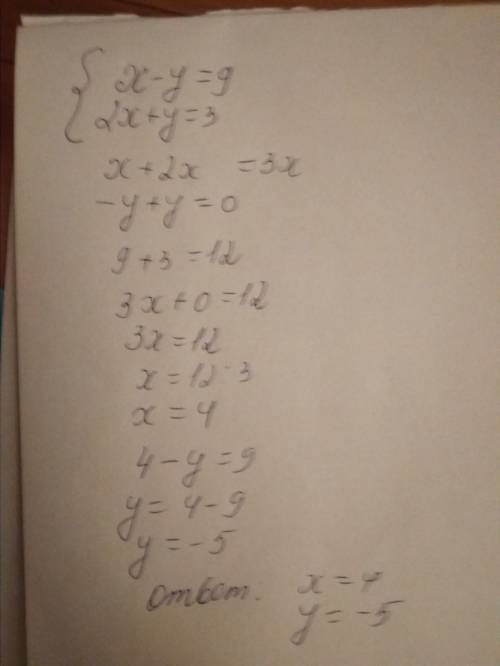 x-y=9
2x+y=3
x+2x =3x
-y+y=0
9+3=12
3x+0=12
3x=12
x=12:3
x=4
4-y=9
y=4-9
y=-5
ответ. x=4
y=-5